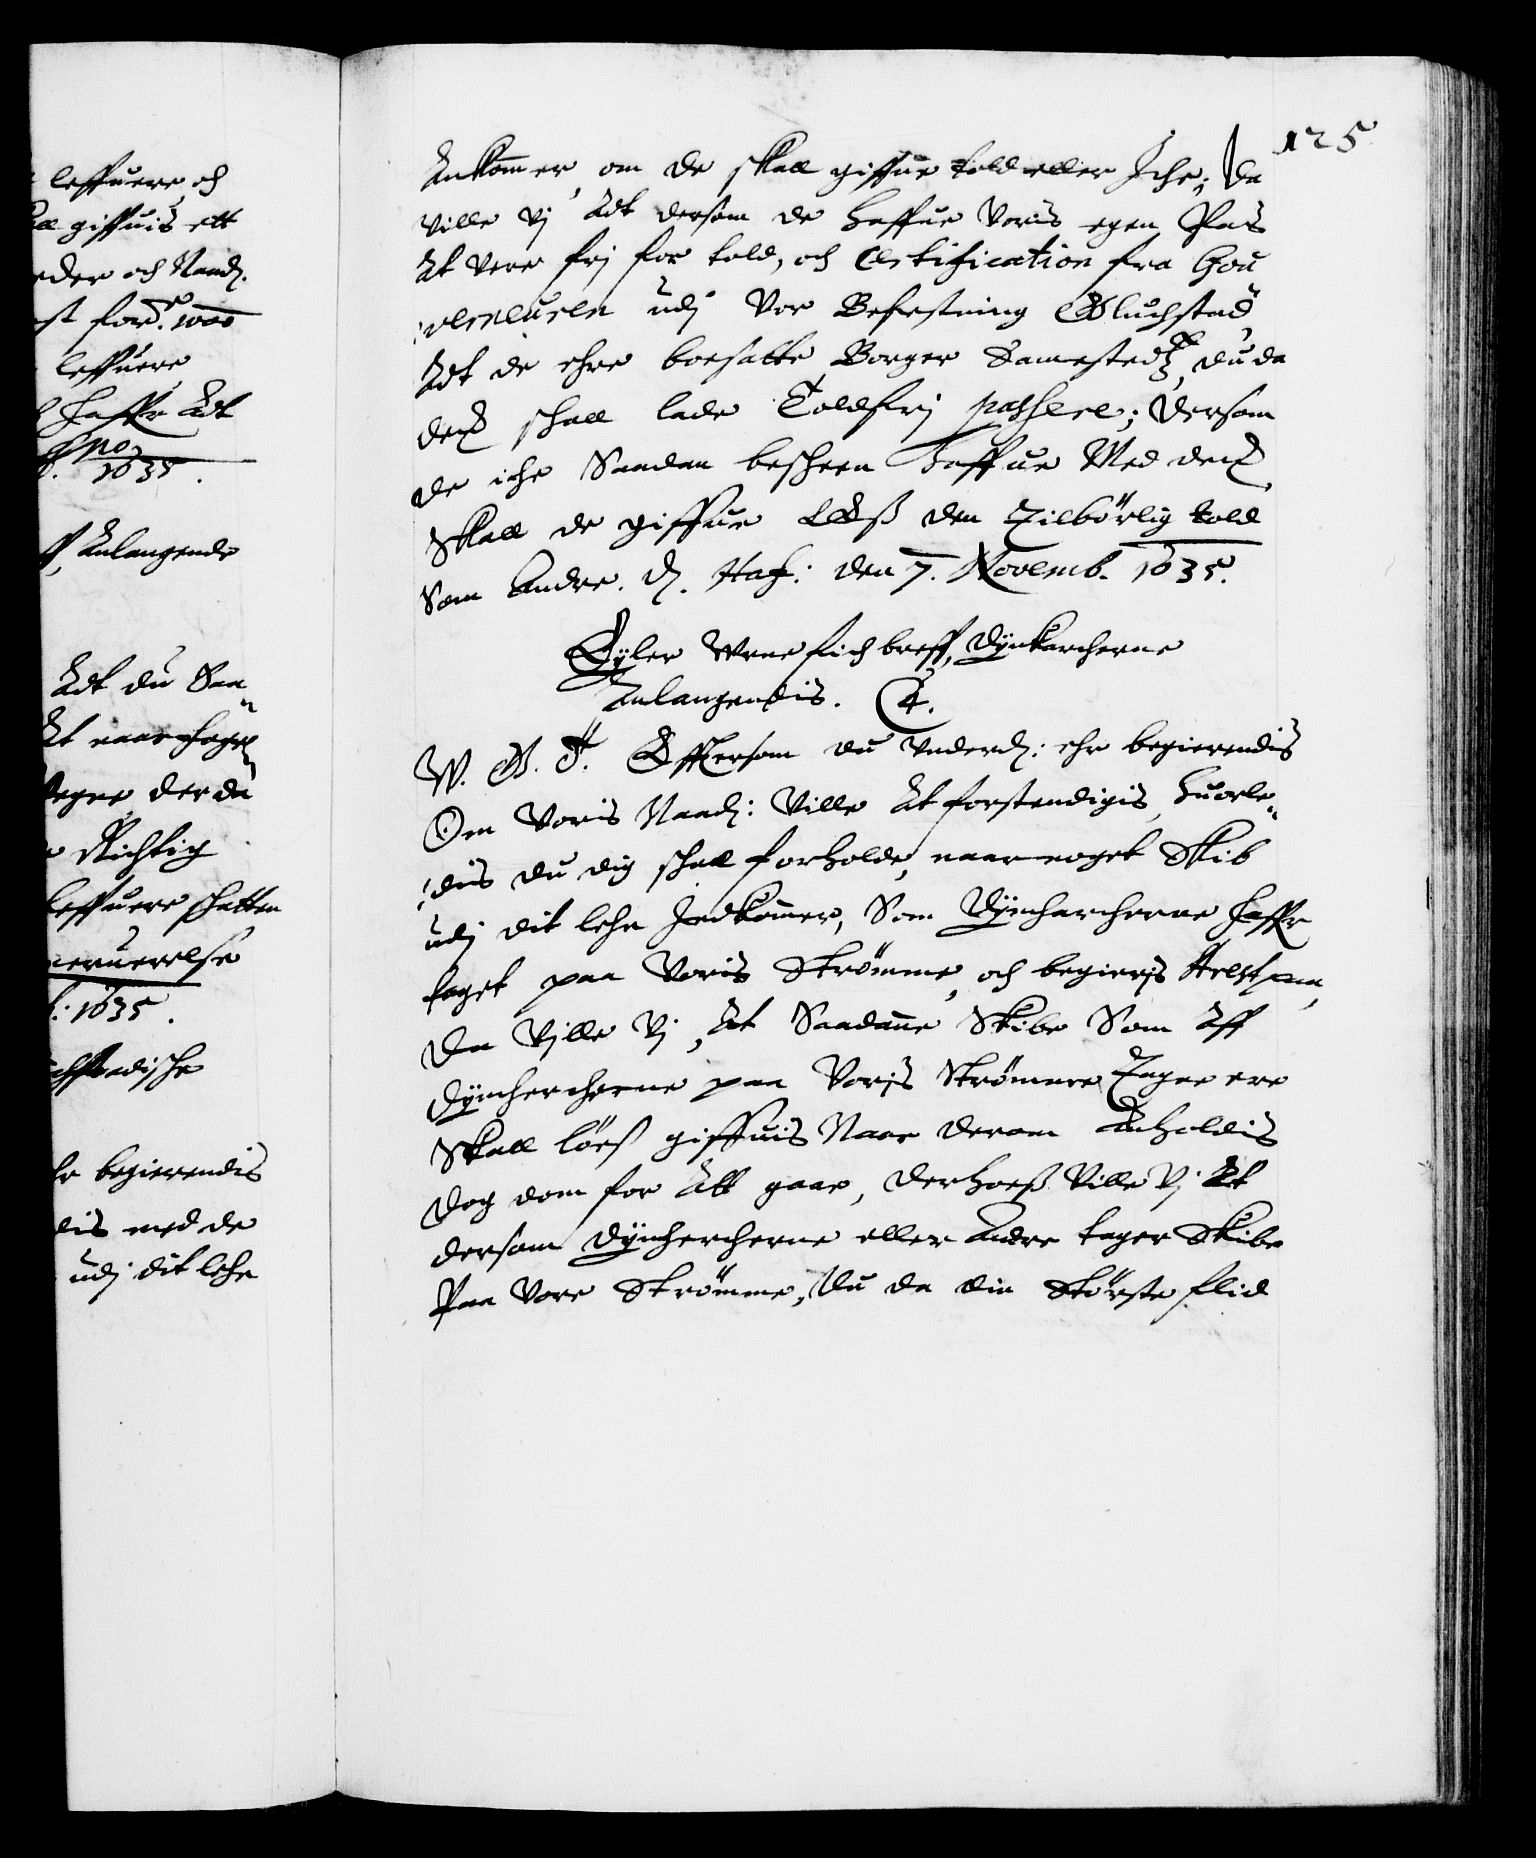 125
Ankommer, om de skall giffue told eller Iche; Da
ville vj Adt dersom de haffue Voris egen Pas
At vere frj for told, och Certification fra Gou
verneuren udj Vor Befestning Glückstad
Adt de ehre boesatte Borger Sammestedtz, du da
dem schall lade Toldfrj passere; Dersom
de iche Saadan bescheen haffue Med dem,
Skall de giffue den Tilbörlig told
Som Andre. D. Haf: den 7. Novemb. 1635.
Eyler Wrne fich breff, Dynkercherne
Anlangendis. C 4.
W. G. T. Efftersom du Underd: ehr begierendis
Om Voris Naad: Ville At forstendigis, huorle-
dis du dig schall forholde, naar noget Skib
udj dit lehn Indkommer, Som Dyncharcherne haffr
taget paa Voris Strömme, och begieris Arrest paa,
Da Ville Vj, At Saadanne Skibe Som Aff
Dynchercherne paa Voris Strömme Tagne ere
Skall löes giffuis Naar derom Anholdis
Dog dom for Att gaar, derhoes Ville Vj At
dersom Dynchercherne eller Andre tager Skibe
Paa Vore Strömme, Du da din Störste flid
leffuere, och
giffuis ett
och Naad.
leffuere
haffr Adt
1635.
Anlangende
Adt du Saa-
At naar
der du
Richtig
leffuere schatten
1635.
begierendis
med de
udj dit lehn